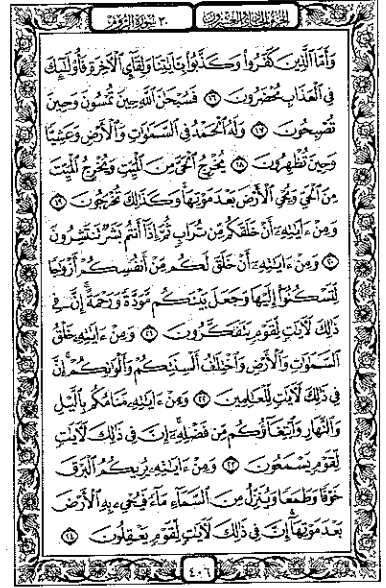 الجزء الحادي والعشرون ٣٠ سورة الروم
وَأَمَّا الَّذِينَ كَفَرُوا وَكَذَّبُوا بِآيَاتِنَا وَلِقَاءِ الْآخِرَةِ فَأُولَٰئِكَ
فِي الْعَذَابِ مُحْضَرُونَ ١٦ فَسُبْحَانَ اللَّهِ حِينَ تُمْسُونَ وَحِينَ
تُصْبِحُونَ ١٧ وَلَهُ الْحَمْدُ فِي السَّمَاوَاتِ وَالْأَرْضِ وَعَشِيًّا
وَحِينَ تُظْهِرُونَ ١٨ يُخْرِجُ الْحَيَّ مِنَ الْمَيِّتِ وَيُخْرِجُ الْمَيِّتَ
مِنَ الْحَيِّ وَيُحْيِي الْأَرْضَ بَعْدَ مَوْتِهَا وَكَذَٰلِكَ تُخْرَجُونَ ١٩
وَمِنْ آيَاتِهِ أَنْ خَلَقَكُم مِّن تُرَابٍ ثُمَّ إِذَا أَنتُم بَشَرٌ تَنتَشِرُونَ
٢٠ وَمِنْ آيَاتِهِ أَنْ خَلَقَ لَكُم مِّنْ أَنفُسِكُمْ أَزْوَاجًا
لِّتَسْكُنُوا إِلَيْهَا وَجَعَلَ بَيْنَكُم مَّوَدَّةً وَرَحْمَةً إِنَّ فِي
ذَٰلِكَ لَآيَاتٍ لِّقَوْمٍ يَتَفَكَّرُونَ ٢١ وَمِنْ آيَاتِهِ خَلْقُ
السَّمَاوَاتِ وَالْأَرْضِ وَاخْتِلَافُ أَلْسِنَتِكُمْ وَأَلْوَانِكُمْ إِنَّ
فِي ذَٰلِكَ لَآيَاتٍ لِّلْعَالِمِينَ ٢٢ وَمِنْ آيَاتِهِ مَنَامُكُم بِاللَّيْلِ
وَالنَّهَارِ وَابْتِغَاؤُكُم مِّن فَضْلِهِ إِنَّ فِي ذَٰلِكَ لَآيَاتٍ
لِّقَوْمٍ يَسْمَعُونَ ٢٣ وَمِنْ آيَاتِهِ يُرِيكُمُ الْبَرْقَ
خَوْفًا وَطَمَعًا وَيُنَزِّلُ مِنَ السَّمَاءِ مَاءً فَيُحْيِي بِهِ الْأَرْضَ
بَعْدَ مَوْتِهَا إِنَّ فِي ذَٰلِكَ لَآيَاتٍ لِّقَوْمٍ يَعْقِلُونَ ٢٤
٤٠٦